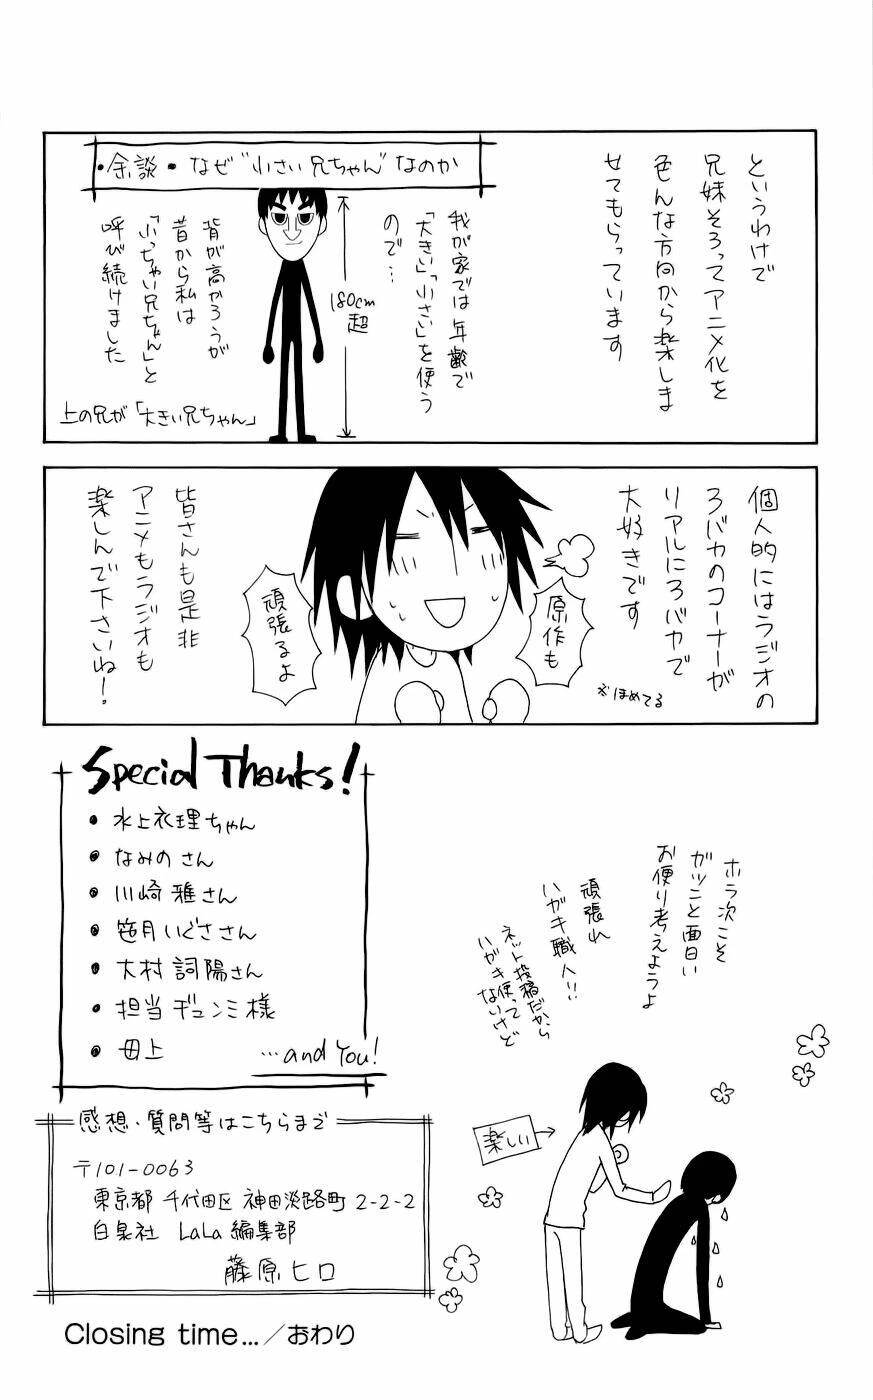 というわけで
兄妹そろってアニメ化を
色んな方向から楽しま
せてもらっています
・余談・なぜ“小さい兄ちゃん”なのか
我が家では年齢で
「大きい」「小さい」を使う
ので…
180cm
超
背が高かろうが
昔から私は
「小っちゃい兄ちゃん」と
呼び続けました
上の兄が「大きい兄ちゃん」
個人的にはラジオの
ろバカのコーナーが
リアルにろバカで
大好きです
原作も
頑張るよ
※ほめてる
皆さんも是非
アニメもラジオも
楽しんで下さいね!
Special Thanks!
・水上衣理ちゃん
・なみのさん
・川崎雅さん
・笹月いぐささん
・大村詞陽さん
・担当ヂュンミ様
・母上
…and You!
ホラ次こそ
ガツこと面白い
お便り考えようよ
頑張れ
ハガキ職人!!
ネット投稿だから
ハガキ使って
ないけど
楽しい
感想・質問等はこちらまで
〒101-0063
東京都 千代田区 神田淡路町 2-2-2
白泉社 LaLa編集部
藤原ヒロ
Closing time…／おわり